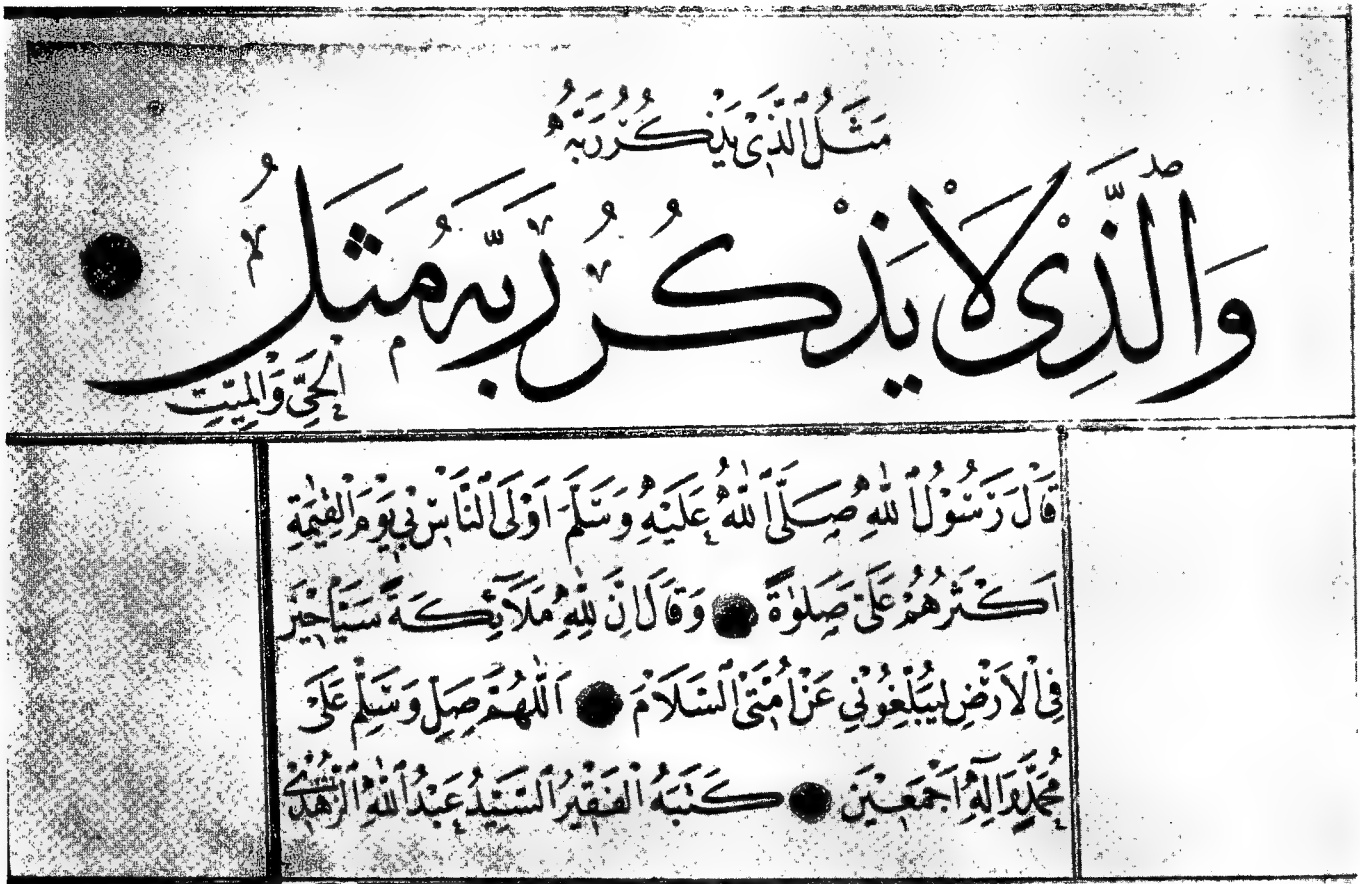 مَثَلُ الَّذِي يَذْكُرُ رَبَّهُ
وَالَّذِي لَا يَذْكُرُ رَبَّهُ مَثَلُ
الْحَيِّ وَالْمَيِّتِ
قَالَ رَسُولُ اللهِ صَلَّى اللهُ عَلَيْهِ وَسَلَّمَ اَوْلَى النَّاسِ بِي يَوْمَ الْقِيٰمَةِ
اَكْثَرُهُمْ عَلَيَّ صَلٰوةً وَقَالَ اِنَّ لِلّٰهِ مَلَائِكَةً سَيَّاحِينَ
فِي الْاَرْضِ يُبَلِّغُونِي عَنْ اُمَّتِي السَّلَامَ اَللّٰهُمَّ صَلِّ وَسَلِّمْ عَلَى
مُحَمَّدٍ وَاٰلِهِ اَجْمَعِينَ كَتَبَهُ الْفَقِيرُ السَّيِّدُ عَبْدُ اللهِ الزُّهْدِي